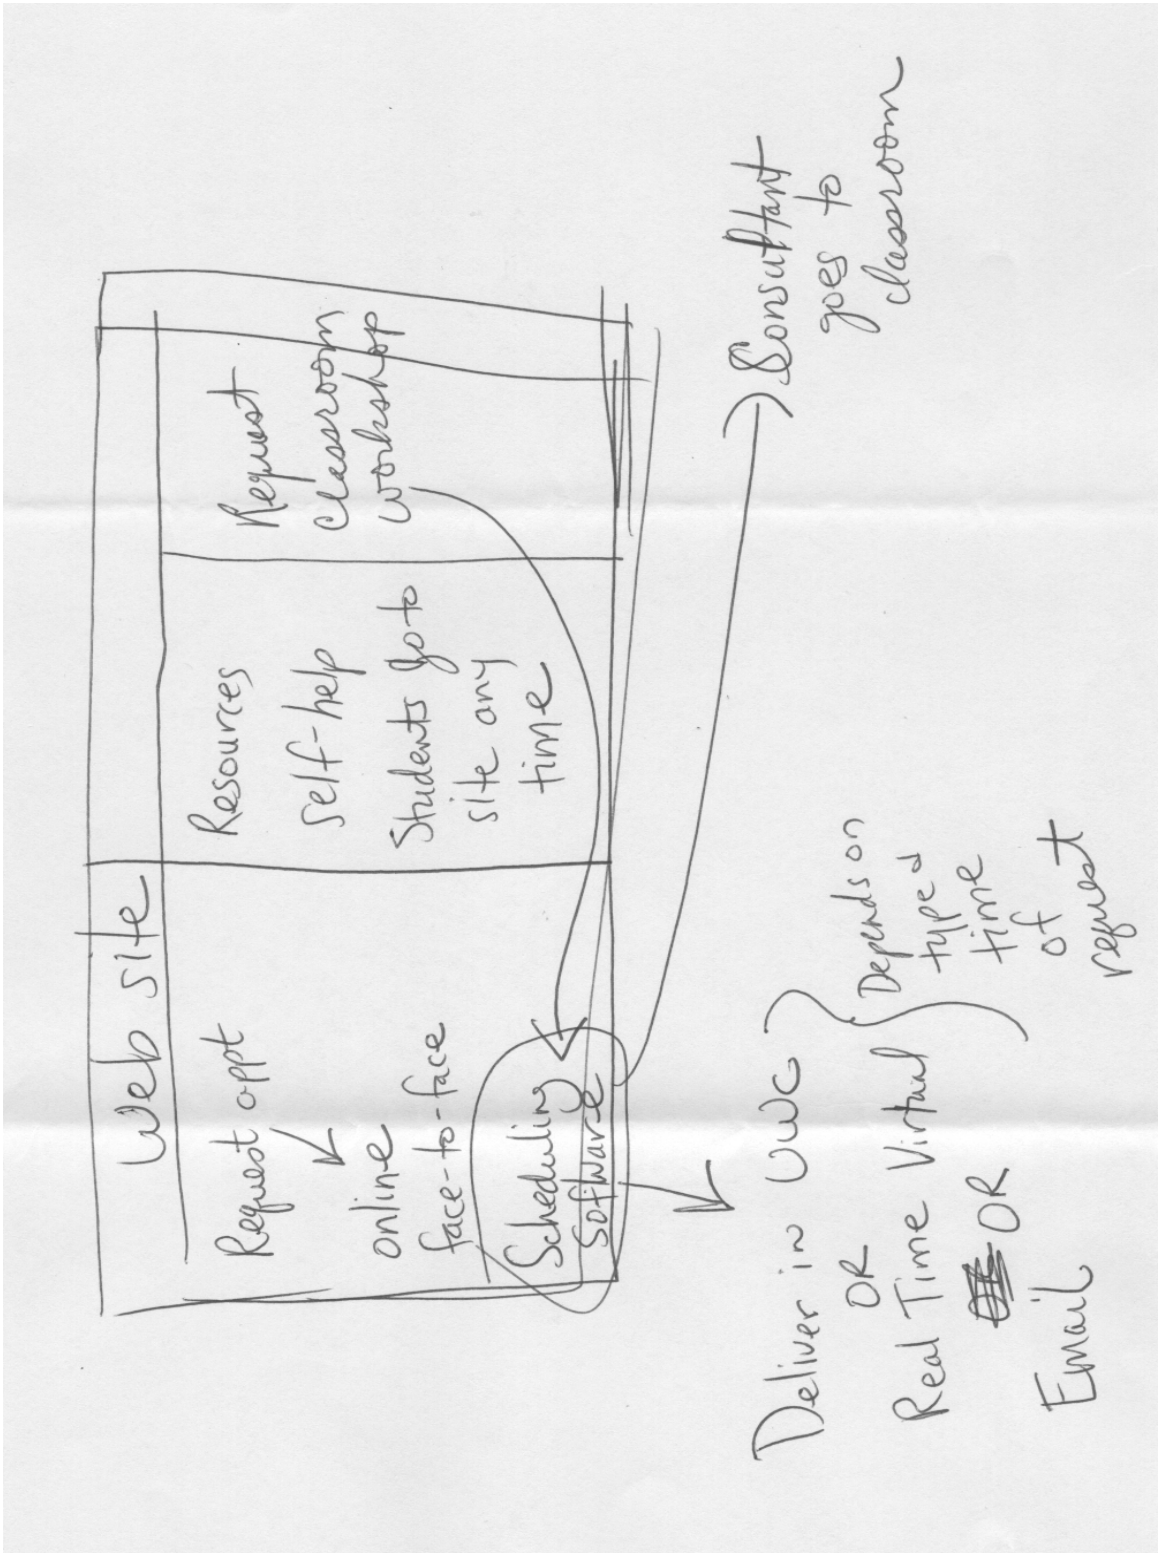 Web site
Request appt
online
face-to-face
Scheduling
software
Resources
self-help
Students go to
site any
time
Request
classroom
workshop
Deliver in UWC
OR
Real Time Virtual
OR
Email
Depends on
type &
time
of
request
Consultant
goes to
classroom